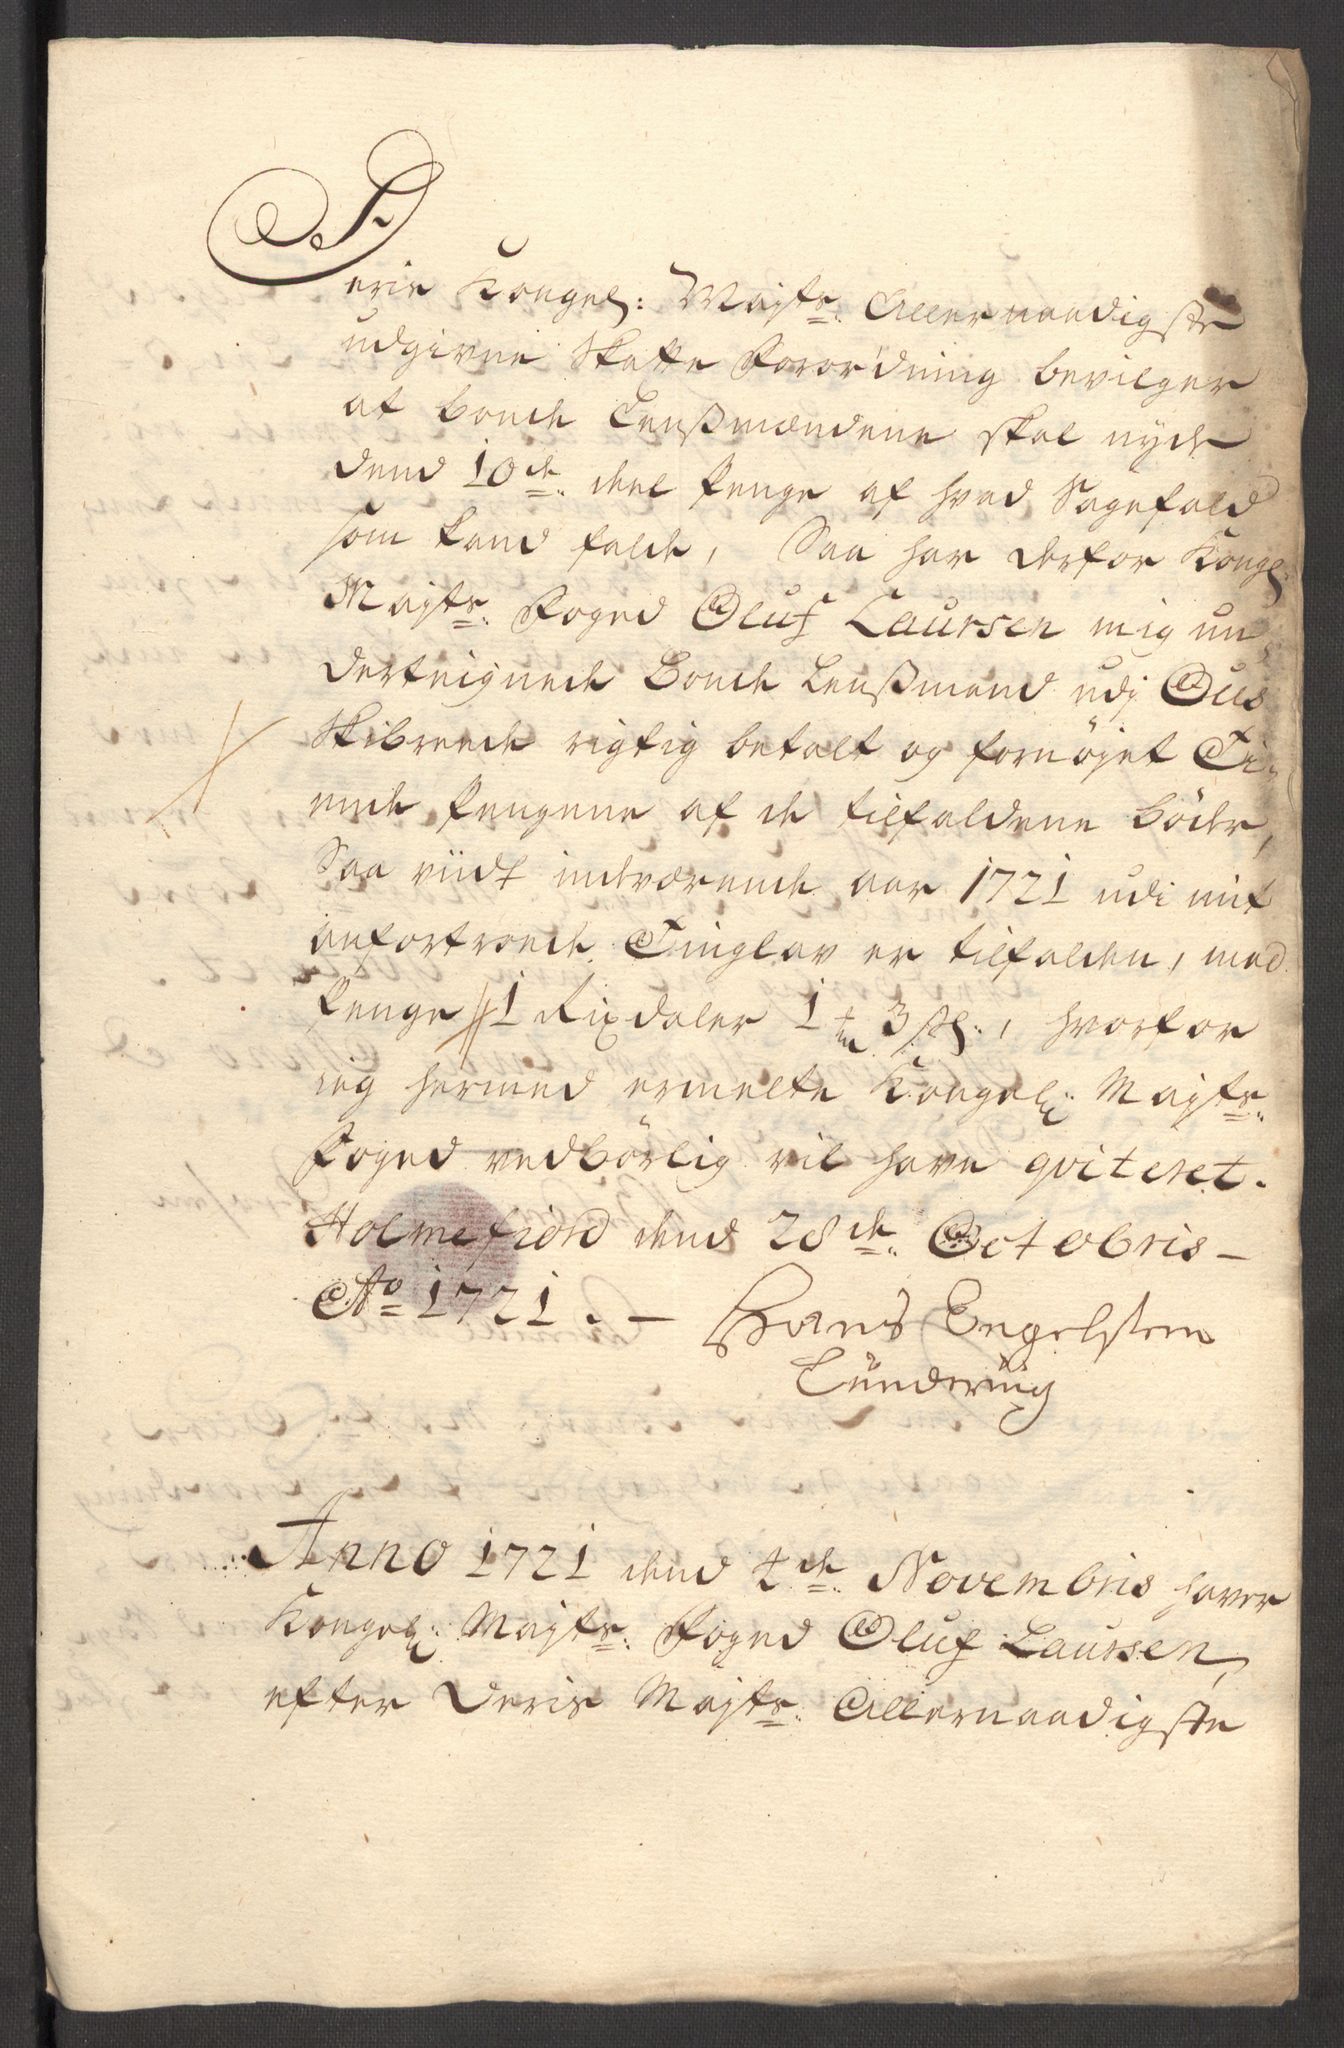 Deris Kongel: Mayts: Allernaadigste
udgivne Skatte Forordning bevilger
at bonde Lensßmændene skal nyde
dend 10de deel Penge af hvad Sagefald
som kand falde, Saa har derfor Kongl:
Mayts: Foged Oluf Laursen mig un
derteignede Bonde Lensßmand udj Ous
Skibrede rigtig betalt og fornöjet Ti-
ende Pengene af de tilfaldene Böder,
Saa viidt indeværende aar 1721 udi mit
anfortroede Tinglav er tilfalden, med
Penge 1 Rixdaler 1 3 ßl:, hvorfor
ieg hermed ermelte Kongel: Mayts:
Foged vedbörlig vil have qviteret.
Holmefiord dend 28de Octobris –
Ao 1721. – Hans Engelsten
Lünderüng
Anno 1721 dend 4de Novembris haver
Kongel: Mayts: Foged Oluf Laursen,
efter Deris Mayts: Allernaadigste